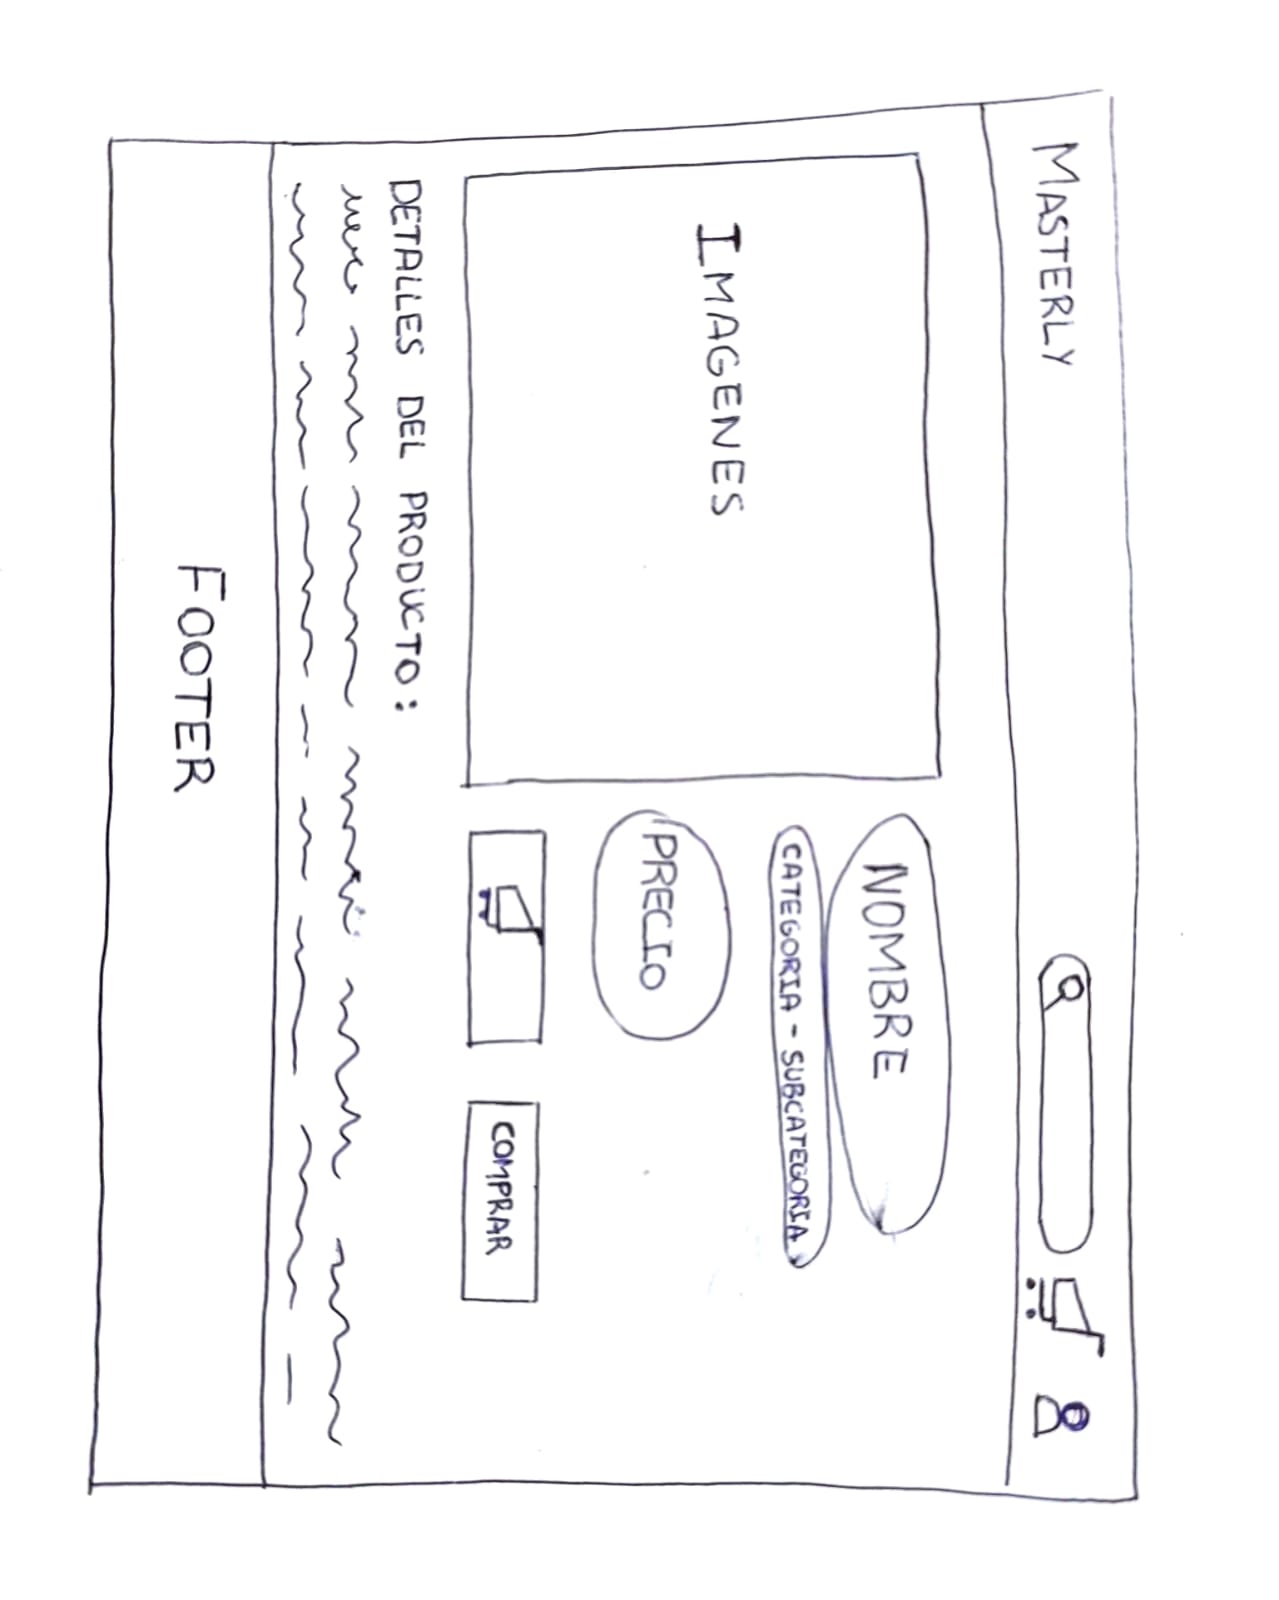 MASTERLY
NOMBRE
CATEGORIA - SUBCATEGORIA
IMAGENES
PRECIO
COMPRAR
DETALLES DEL PRODUCTO:
FOOTER